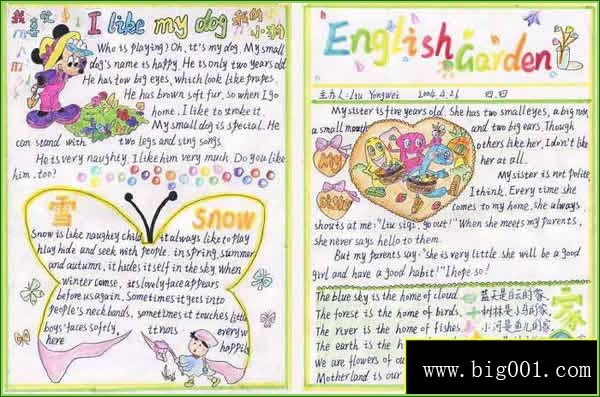 I like my dog
Who is playing? Oh, it's my dog. My small
dog's name is happy. He is only two years old
He has two big eyes, which look like grapes.
He has brown soft fur, so when I go
home, I like to stroke it.
My small dog is special. He
can stand with two legs and sing songs.
He is very naughty. I like him very much. Do you like
him, too?
雪
SNOW
Snow is like naughty child, it always like to play
hide and seek with people. in spring, summer
and autumn, it hides itself in the sky. When
winter comse, its lovely face appears
before us again. Sometimes it gets into
people's neck bands, sometimes it touches little
boys' faces softly, it runs everyw
here happily
English Garden
主办人: Liu Yongwei 2004.2.26
My sister is five years old. She has two small eyes, a big nose,
a small mouth and two big ears. Though
others like her, I don't like
her at all.
My My sister is not polite,
I think. Every time she
sister comes to my home, she always
shouts at me: "Liu siqi, go out!" When she meets my parents,
she never says hello to them.
But my parents say: "she is very little she will be a good
girl and have a good habit!" I hope so!
The blue sky is the home of cloud. 蓝天是白云的家,
The forest is the home of birds. 树林是小鸟的家,
The river is the home of fishes. 小河是鱼儿的家,
The earth is the h
We are flowers of ou
Motherland is our
家
www.big001.com